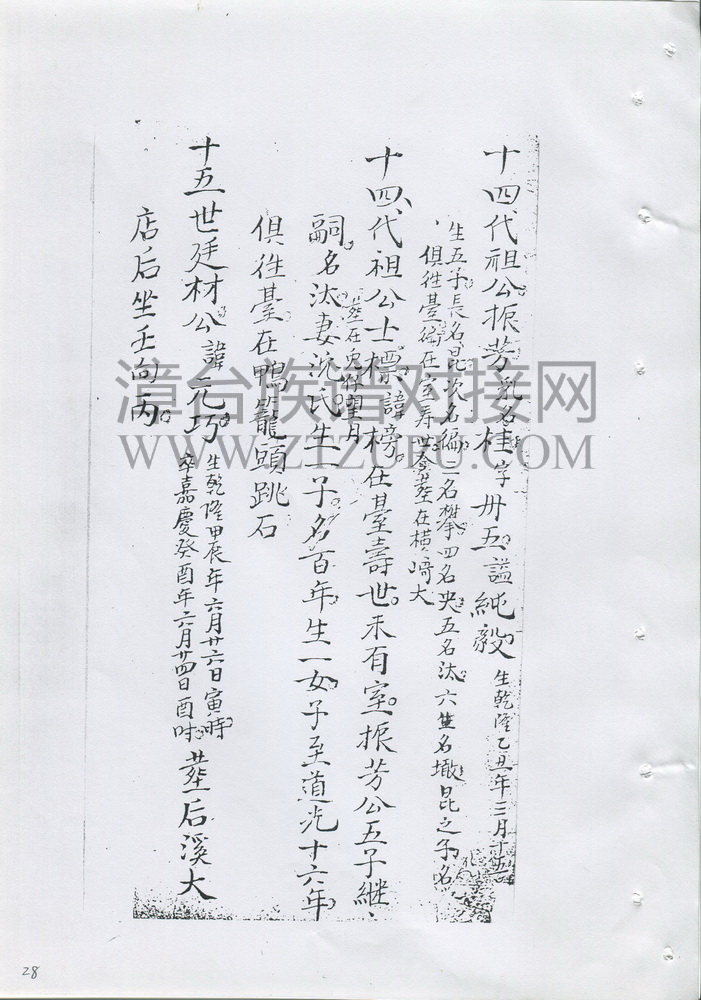 十四代祖公振芳乳名桂字卅五謚純毅生乾隆乙丑年三月十五
生五子長名昆次名編三名攀四名央五名汰六生名墩昆之子名
俱徃臺
在室壽世
葬在橫崎大
十四代祖公士標諱榜仕臺壽世未有室振芳公五子継
葬在
望月
嗣名汰妻沈氏生一子名百年生一女子至道光十六年
俱徃臺在鴨籠頭跳石
十五世廷材公諱元巧生乾隆甲辰年六月廿六日寅時
卒嘉慶癸酉年六月廿四日酉时
葬后溪大
店后坐壬向丙
漳台族谱对接网
WWW.ZTZUPU.COM
28